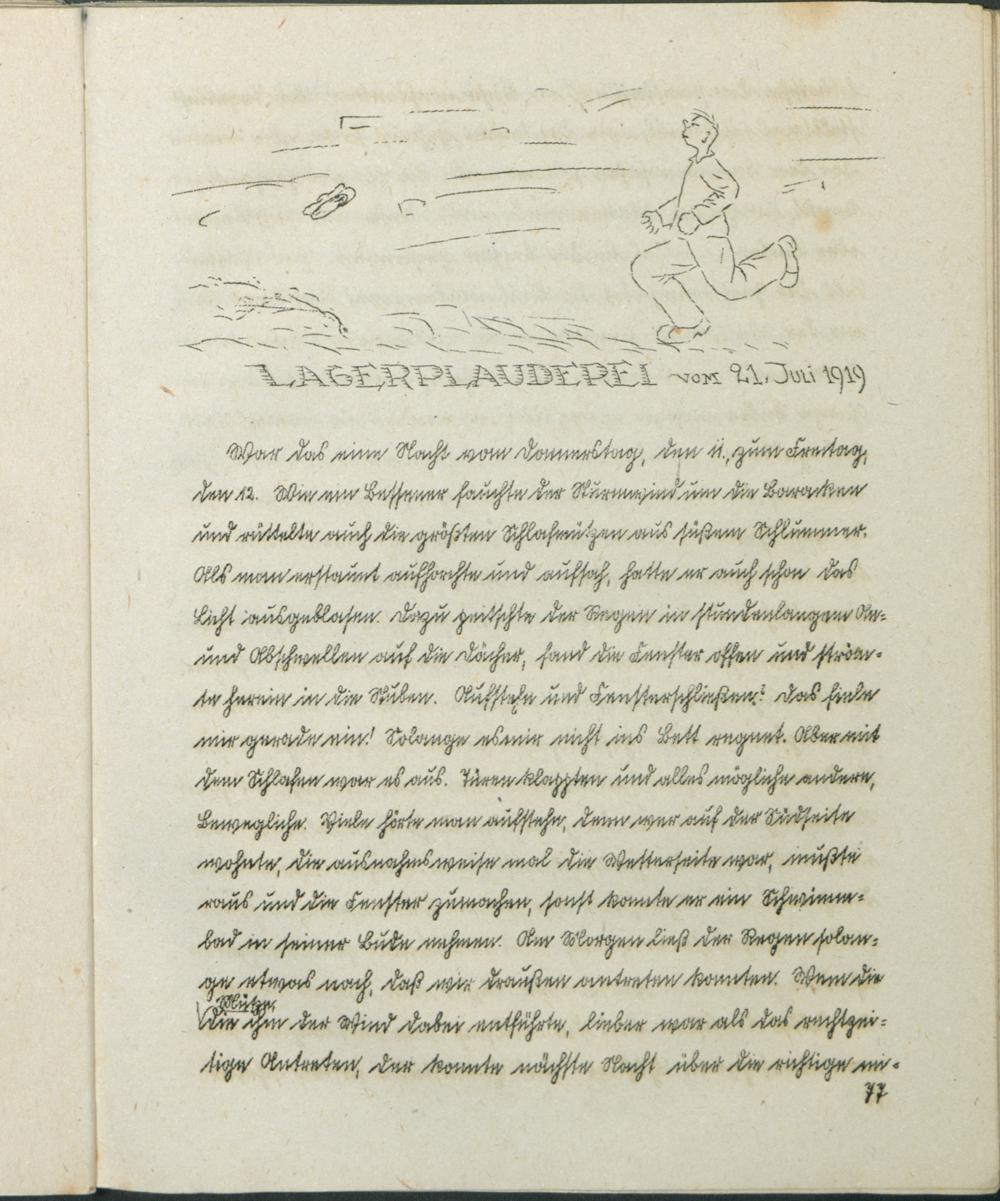 LAGERPLAUDEREI VOM 21. JULI 1919
War das eine Nacht vom Donnerstag, den 11., zum Freitag,
den 12. Wie ein Bessener fauchte der Sturmwind um die Baracken
und rüttelte auch die größten Schlafmützen aus süßem Schlummer.
Als man erstaunt aufhorchte und aufsah, hatte er auch schon das
Licht ausgeblasen. Dazu peitschte der Regen in stundenlangem An-
und Abschwellen auf die Dächer, fand die Fenster offen und ström-
te herein in die Stuben. Aufstehn und Fensterschließen? Das fiele
mir gerade ein! Solange es mir nicht ins Bett regnet. Aber mit
dem Schlafen war es aus. Türen klappten und alles mögliche andere,
Bewegliche. Viele hörte man aufstehn, denn wer auf der Südseite
wohnte, die ausnahmsweise mal die Wetterseite war, mußte
raus und die Fenster zumachen, sonst konnte er ein Schwimm-
bad in seiner Bude nehmen. Am Morgen ließ der Regen solan-
ge etwas nach, daß wir draußen antreten konnten. Wem die
Mütze,
die ihm der Wind dabei entführte, lieber war als das rechtzei-
tige Antreten, der konnte nächste Nacht über die richtige mi-
77